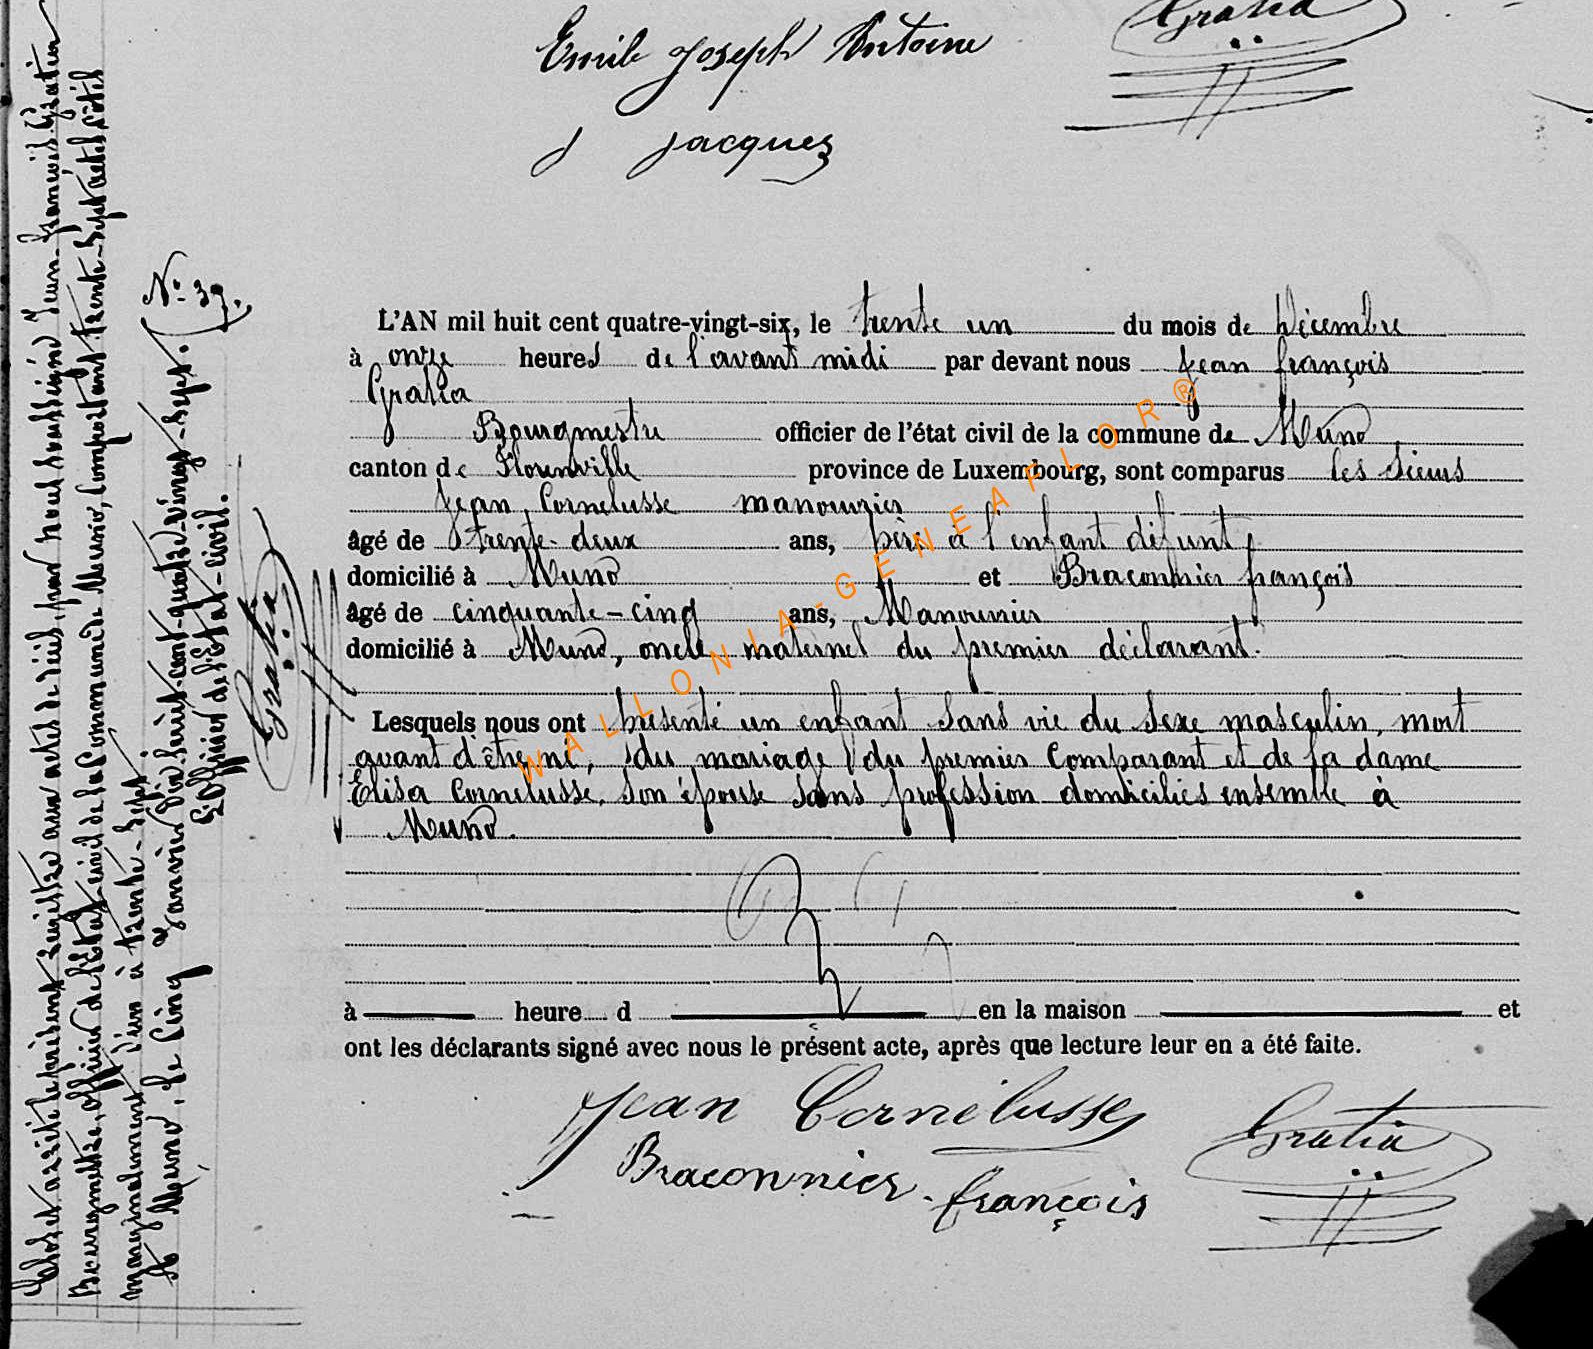 Emile Joseph Antoine
Gratia
J Jacques
N° 37.
L'AN mil huit cent quatre-vingt-six, le trente un du mois de Décembre
à onze heures de l'avant midi par devant nous Jean françois
Gratia
Bourgmestre officier de l'état civil de la commune de Muno
canton de Florenville province de Luxembourg, sont comparus les sieurs
Jean Cornelusse manouvrier
âgé de trente-deux ans, père à l'enfant défunt,
domicilié à Muno et Braconnier françois
âgé de cinquante-cinq ans, Manouvrier
domicilié à Muno, oncle maternel du premier déclarant.
Lesquels nous ont présenté un enfant sans vie du sexe masculin, mort
avant d'être né, du mariage du premier Comparant et de la dame
Elisa Cornelusse, son épouse sans profession domiciliés ensemble à
Muno.
à heure d en la maison et
ont les déclarants signé avec nous le présent acte, après que lecture leur en a été faite.
Jean Cornélusse
Gratia
Braconnier françois
Clos et arrêté le présent registre aux actes de décès, par nous soussigné Jean-François Gratia
Bourgmestre, officier de l'état-civil de la Commune de Muno, Comportant trente-sept actes cotés
marginalement d'un à trente-sept
A Muno, le cinq Janvier dix-huit-cent-quatre-vingt-sept.
L'officier de l'état-civil.
Gratia
WALLONIA-GENEAFLOR®